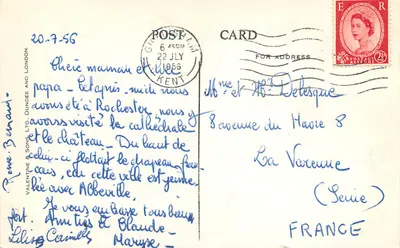 20-7-56
POST CARD
FOR ADDRESS
GILLINGHAM
6 PM
22 JLY
1956
KENT
E R
POSTAGE REVENUE
2½D
Chère maman et
papa - Cet après-midi nous
avons été à Rochester, nous y
avons visité la cathédrale
et le château. Du haut de
celui-ci flottait le drapeau fran-
çais, car cette ville est jume-
lée avec Abbeville.
Je vous embrasse tous bien
fort. Amitiés Claude
Maryse
VALENTINE & SONS, LTD., DUNDEE AND LONDON
Mme et Mr Delesque
8 avenue du Havre 8
La Varenne
(Seine)
FRANCE